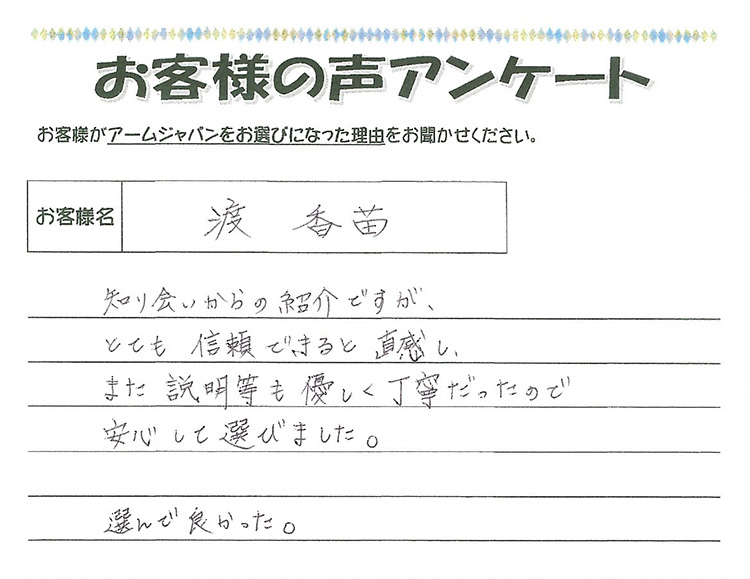 お客様の声アンケート
お客様がアームジャパンをお選びになった理由をお聞かせください。
お客様名
渡 香苗
知り会いからの紹介ですが、
とても 信頼できると 直感し、
また 説明等も 優しく丁寧だったので
安心して選びました。
選んで良かった。